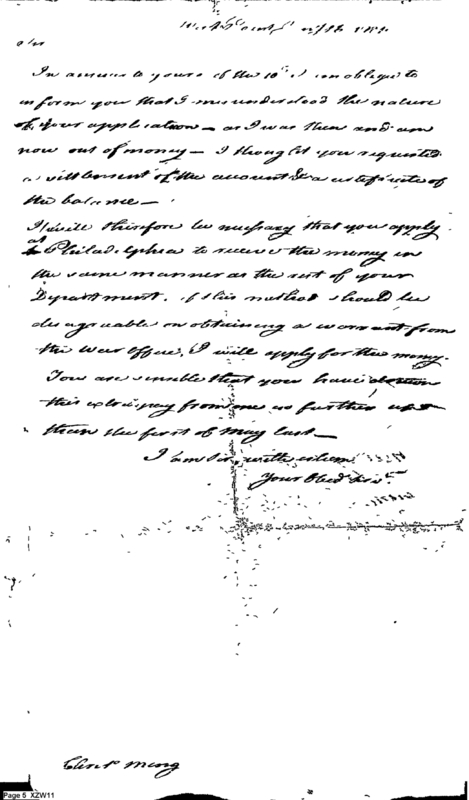 West Point
Sir
In answer to yours of the 10th I am obliged to
inform you that I misunderstood the nature
of your application — as I was then and am
now out of money — I thought you requested
a settlement of the account & a certificate of
the balance —
It will therefore be necessary that you apply
at Philadelphia to receive the money in
the same manner as the rest of your
Department. if this method should be
disagreeable on obtaining a warrant from
the War Office, I will apply for the money.
You are sensible that you have drawn
this extra pay from me no further up
than the first of May last —
I am Sir, with esteem
Your Obed Serv.
Page 5 XZW11